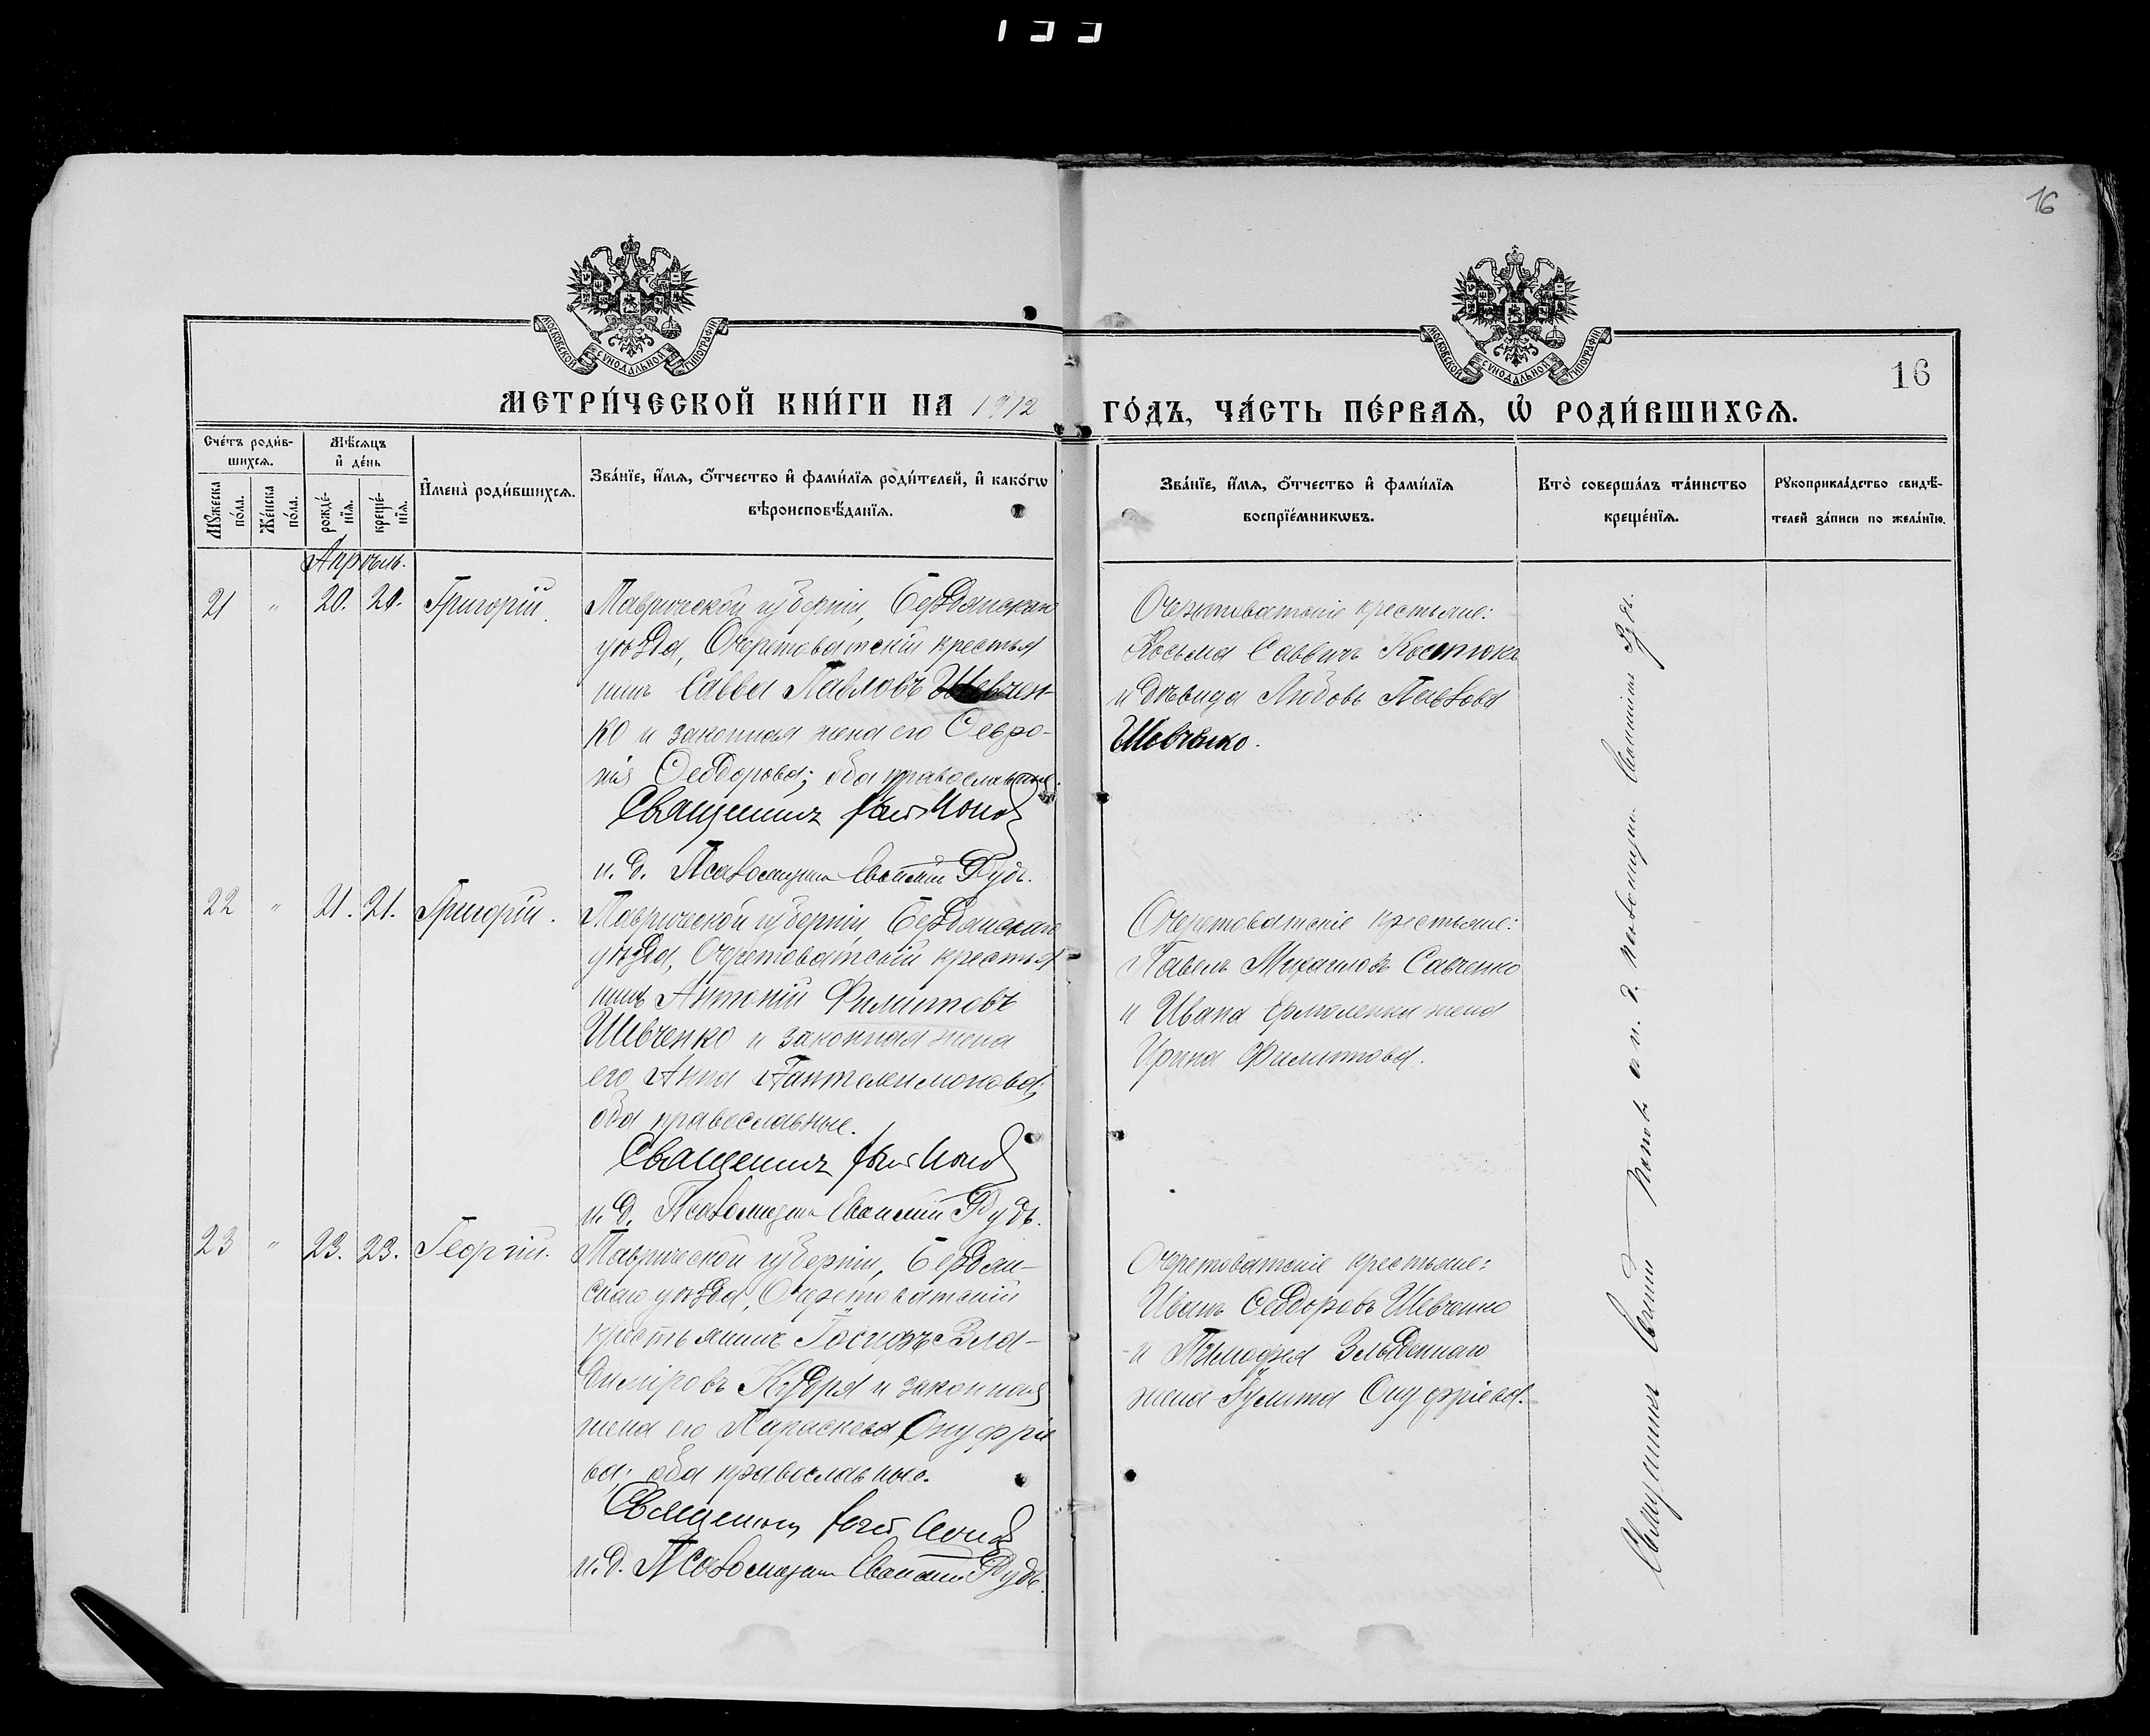 133
16
МОСКОВСКОЙ СѴНОДАЛЬНОЙ ТИПОГРАФІИ
МОСКОВСКОЙ СѴНОДАЛЬНОЙ ТИПОГРАФІИ
16
МЕТРИ́ЧЕСКОЙ КНИ́ГИ НА 1912
ГО́ДЪ, ЧА́СТЬ ПЕ́РВАѦ, Ѡ҆ РОДИ́ВШИХСѦ.
Сче́тъ роди́в-
шихсѧ.
Мꙋ́жеска по́ла.
Же́нска по́ла.
Мѣ́сѧцъ
и҆ де́нь
рожде́-
нїѧ.
креще́-
нїѧ.
И҆мена̀ роди́вшихсѧ.
Зва́нїе, и҆́мѧ, ѻ҆́тчество и҆ фами́лїѧ роди́телей, и҆ како́гѡ
вѣроисповѣ́данїѧ.
Зва́нїе, и҆́мѧ, ѻ҆́тчество и҆ фами́лїѧ
воспрїе́мникѡвъ.
Кто̀ соверша́лъ та́инство
креще́нїѧ.
Рꙋкоприкла́дство свидѣ́-
телей за́писи по жела́нїю.
Апрѣль.
21 " 20. 20. Григорій.
Таврической губерніи, Бердянскаго
уѣзда, Очеретоватскій крестья
нинъ Савва Павловъ Шевчен-
ко и законная жена его Февро-
нія Ѳеодорова; оба православные.
Священникъ Поповъ
и. д. Псаломщика Евстафій Рудь.
Очеретоватскіе крестьяне:
Косьма Саввичъ Костюкъ
и дѣвица Любовь Павлова
Шевченко.
22 " 21. 21. Григорій.
Таврической губерніи, Бердянскаго
уѣзда, Очеретоватскій крестья
нинъ Антоній Филиповъ
Шевченко и законная жена
его Анна Пантелеимонова;
оба православные.
Священникъ Поповъ
и. д. Псаломщика Рудь.
Очеретоватскіе крестьяне:
Павелъ Михаиловъ Савченко
и Ивана Ермоленка жена
Ирина Филипова.
23 " 23. 23. Георгій.
Таврической губерніи, Бердян-
скаго уѣзда, Очеретоватскій
крестьянинъ Іосифъ Вла-
диміровъ Кудря и законная
жена его Параскева Онуфріе
ва; оба православные.
Священникъ Поповъ
и. д. Псаломщика Рудь.
Очеретоватскіе крестьяне:
Иванъ Ѳеодоровъ Шевченко
и Тимофея
жена Іулита Онуфріева.
Священникъ Поповъ и и. д. псаломщика Рудь.